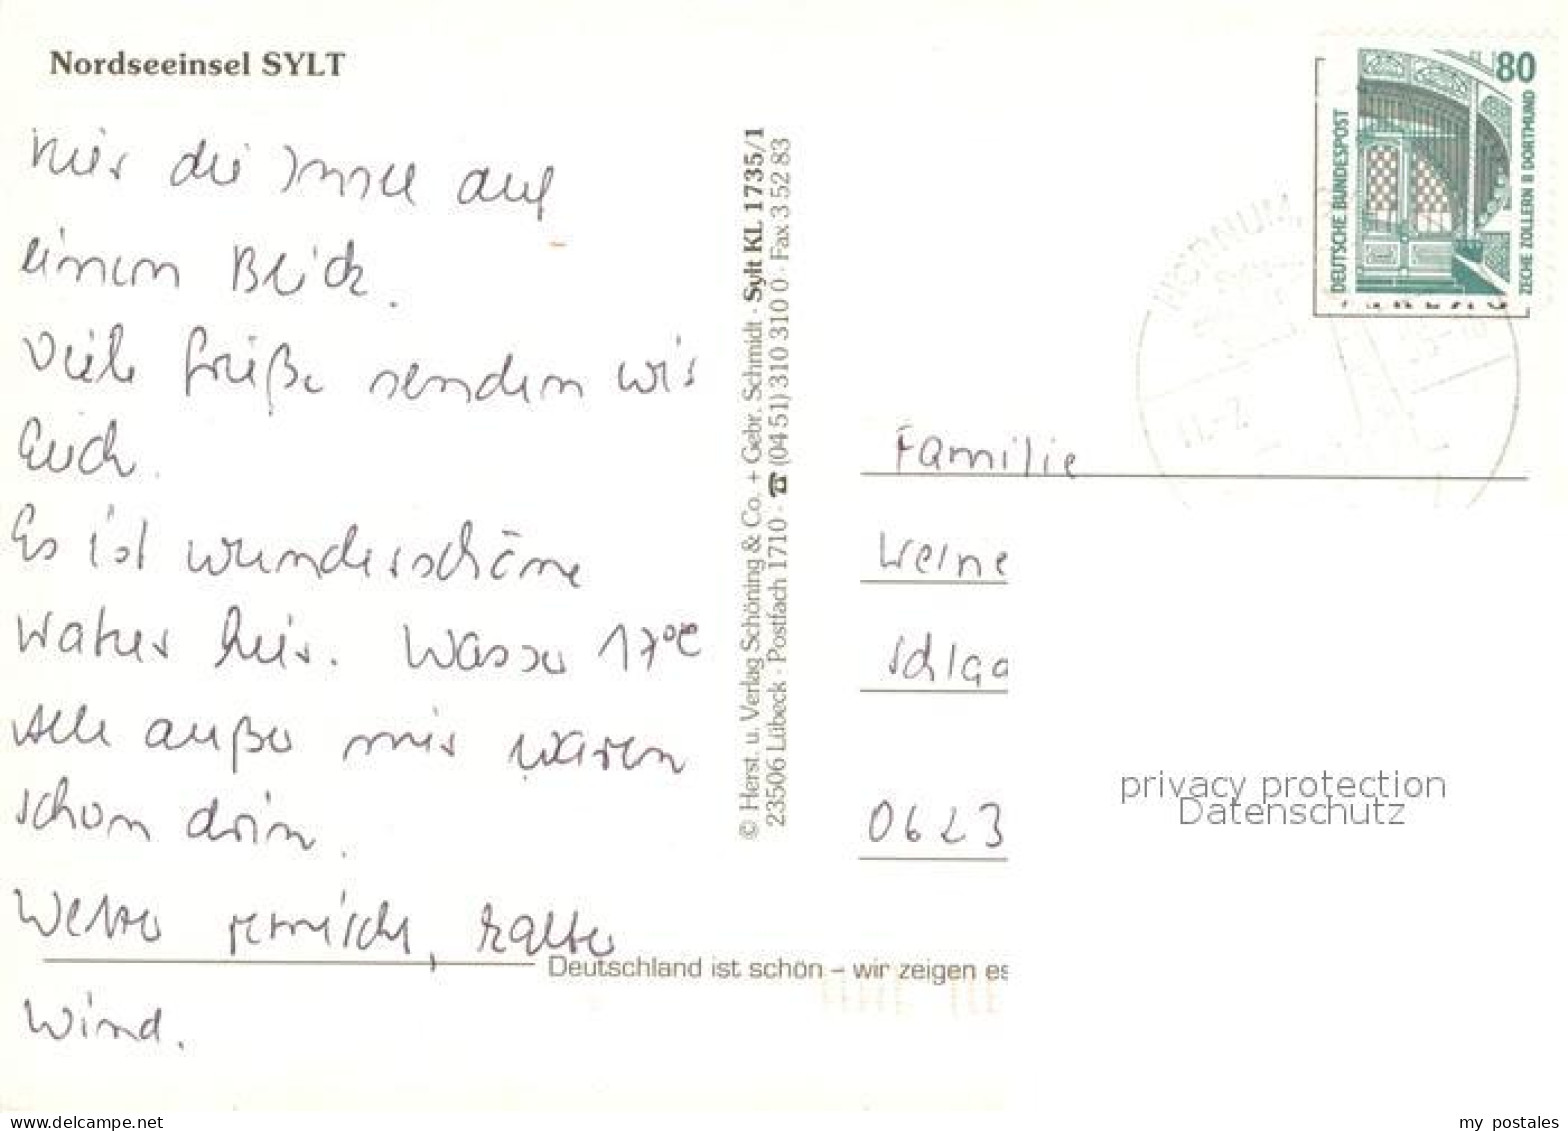 Nordseeinsel SYLT
Hier die Insel auf
einen Blick.
Viele Grüße senden wir
Euch.
Es ist wunderschöne
Watner hier. Wasser 17°C
Alle außer mir waren
schon drin.
Wetter remisch, kalter
Wind.
© Herst. u. Verlag Schöning & Co. + Gebr. Schmidt · Sylt KL 1735/1
23506 Lübeck · Postfach 1710 · ☎ (04 51) 310 310 0 · Fax 3 52 83
Deutschland ist schön – wir zeigen es
80
DEUTSCHE BUNDESPOST
ZECHE ZOLLERN II DORTMUND
HÖRNUM
Familie
Weine
Schlaa
0623
privacy protection
Datenschutz
my postales